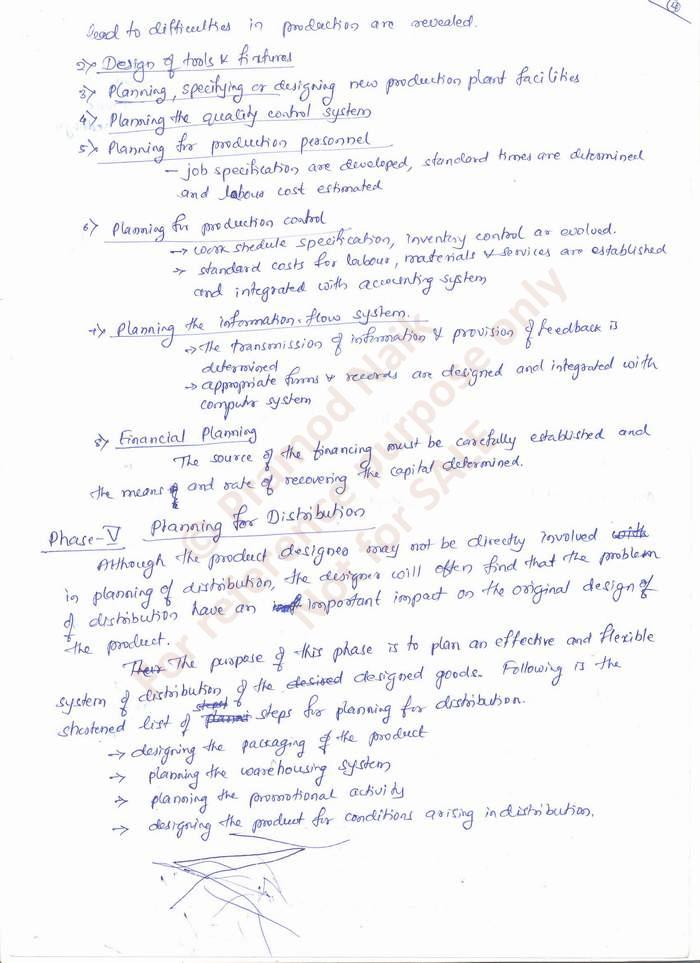 4
lead to difficulties in production are revealed.
2) Design of tools & fixtures
3) Planning, specifying or designing new production plant facilities
4) Planning the quality control system
5) Planning for production personnel
— job specification are developed, standard times are determined
and labour cost estimated
6) Planning for production control
→ work shedule specification, inventory control ar evolved.
→ standard costs for labour, materials & services are established
and integrated with accounting system
7) Planning the information-flow system.
→ The transmission of information & provision of feedback is
determined
→ appropriate forms & records are designed and integrated with
computer system
8) Financial Planning
The source of the financing must be carefully established and
the means and rate of recovering the capital determined.
Phase-V Planning for Distribution
Although the product designed may not be directly involved with
in planning of distribution, the designer will often find that the problem
of distribution have an important impact on the original design of
the product.
Their The purpose of this phase is to plan an effective and flexible
system of distribution of the desired designed goods. Following is the
shortened list of steps for planning for distribution.
→ designing the packaging of the product
→ planning the warehousing system
→ planning the promotional activity
→ designing the product for conditions arising in distribution.
© Pramod Naik
For reference purpose only
Not for SALE